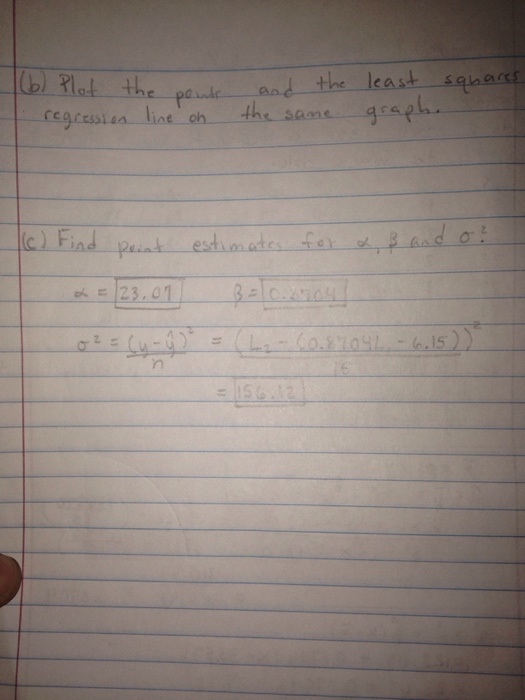 (b) Plot the points and the least squares
regression line on the same graph.
(c) Find point estimates for α, β and σ².
α = 23.07 β = 0.8704
σ² = (y-ŷ)² = (L₂ - (0.8704L₁ - 6.15))²
n 15
= 156.12